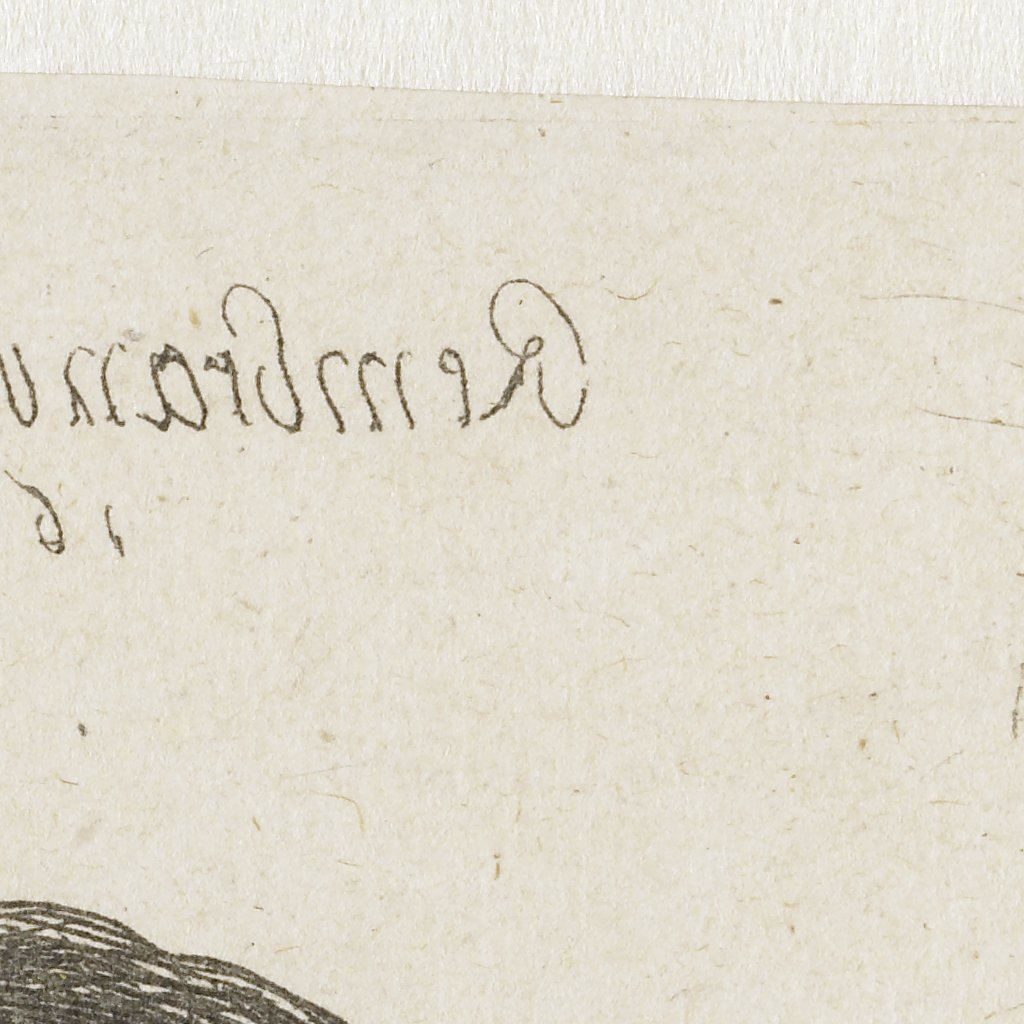 Rembran
16